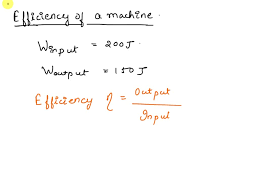 Efficiency of a machine.
Winput = 200J.
Woutput = 150J
Efficiency η = Output / Input